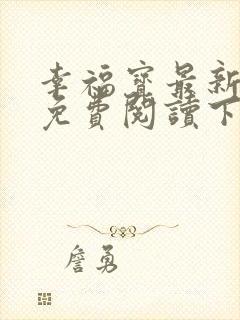 幸福寶最新
免費閱讀下
詹勇